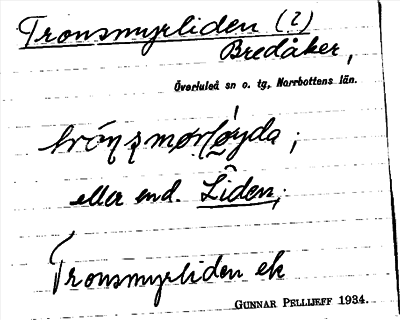 Tronsmyrliden (?)
Bredåker,
Överluleå sn o. tg, Norrbottens län.
eller end. Liden;
Tronsmyrliden ek
GUNNAR PELLIJEFF 1934.